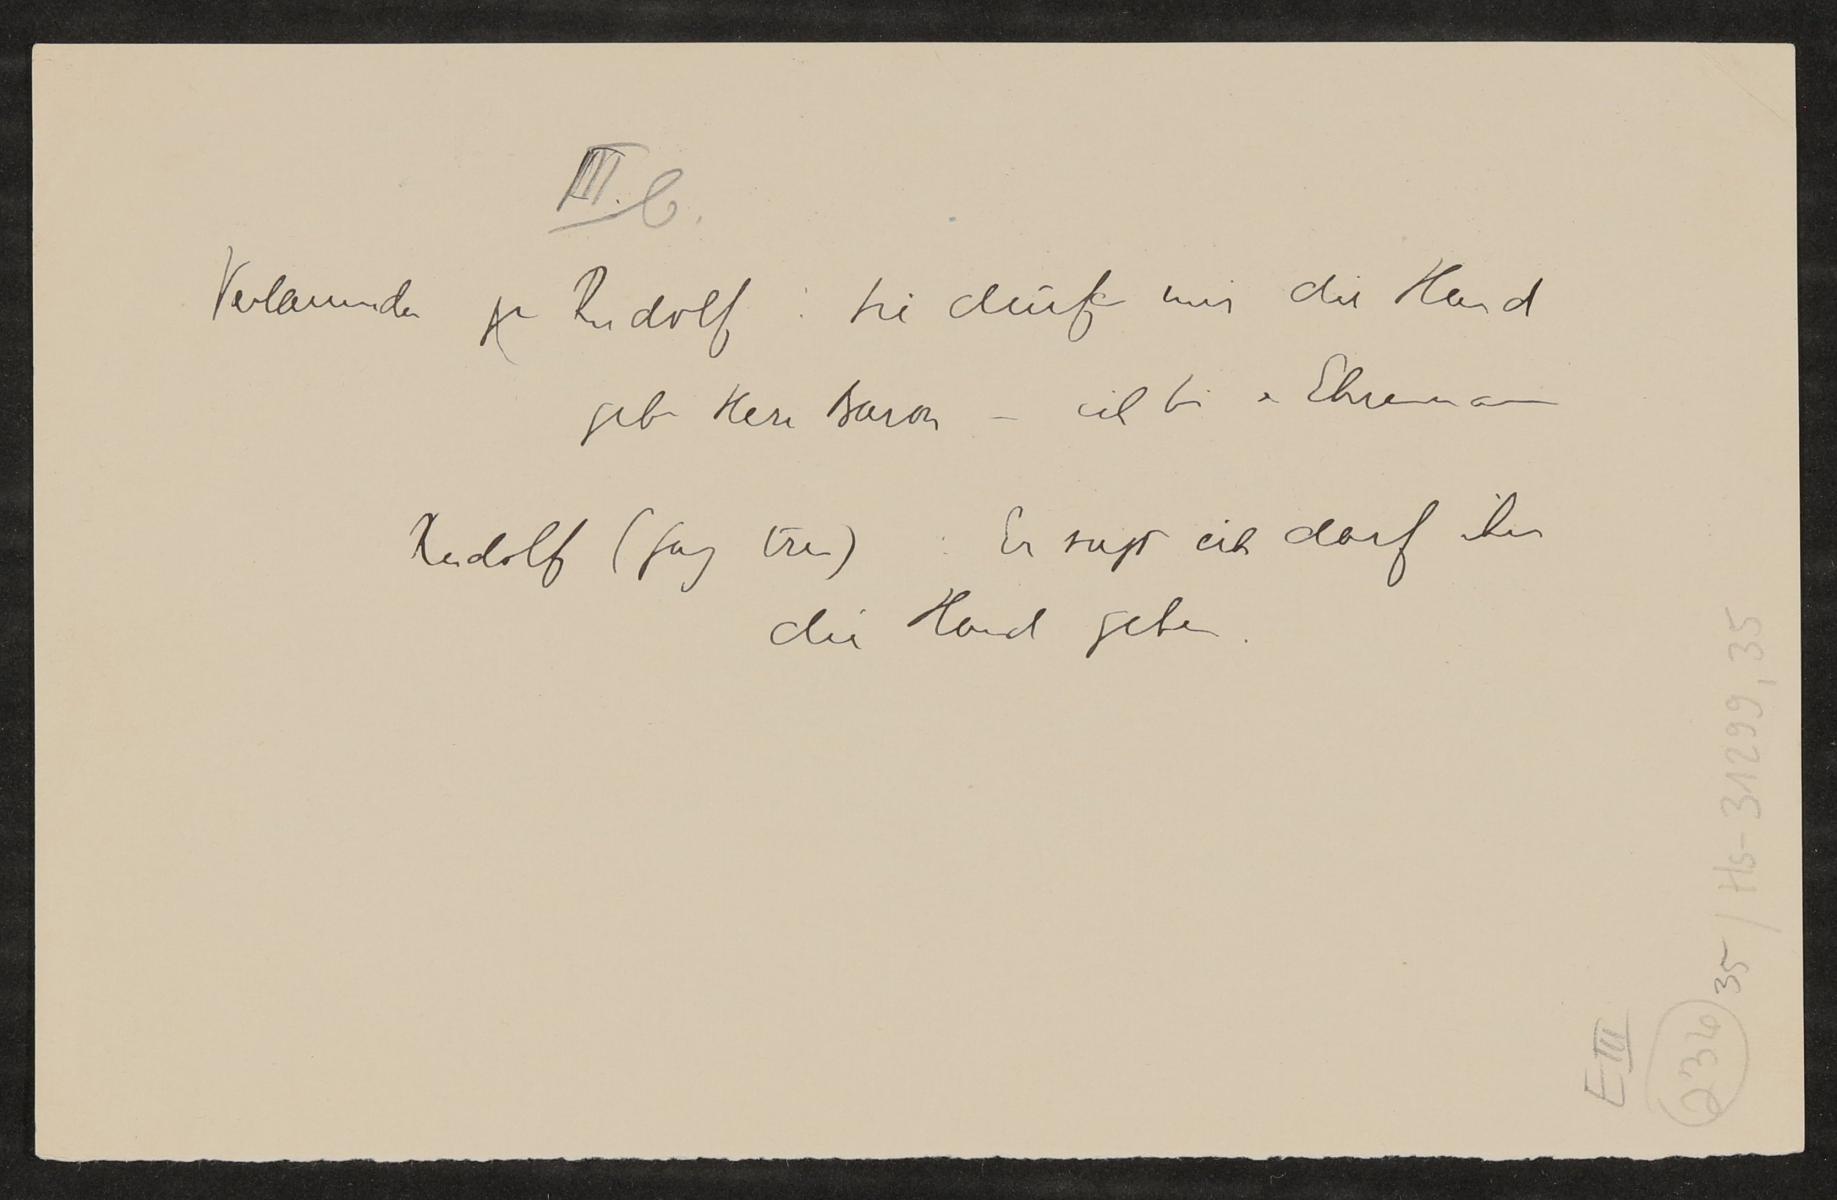 III. C.
Verlaunder zu Rudolf : Sie dürfen mir die Hand
geben Herr Baron – ich bin ein Ehrenmann
Rudolf (ganz treu) : Er sagt ich darf ihm
die Hand geben.
E III
236 35 / Hs-31299,35